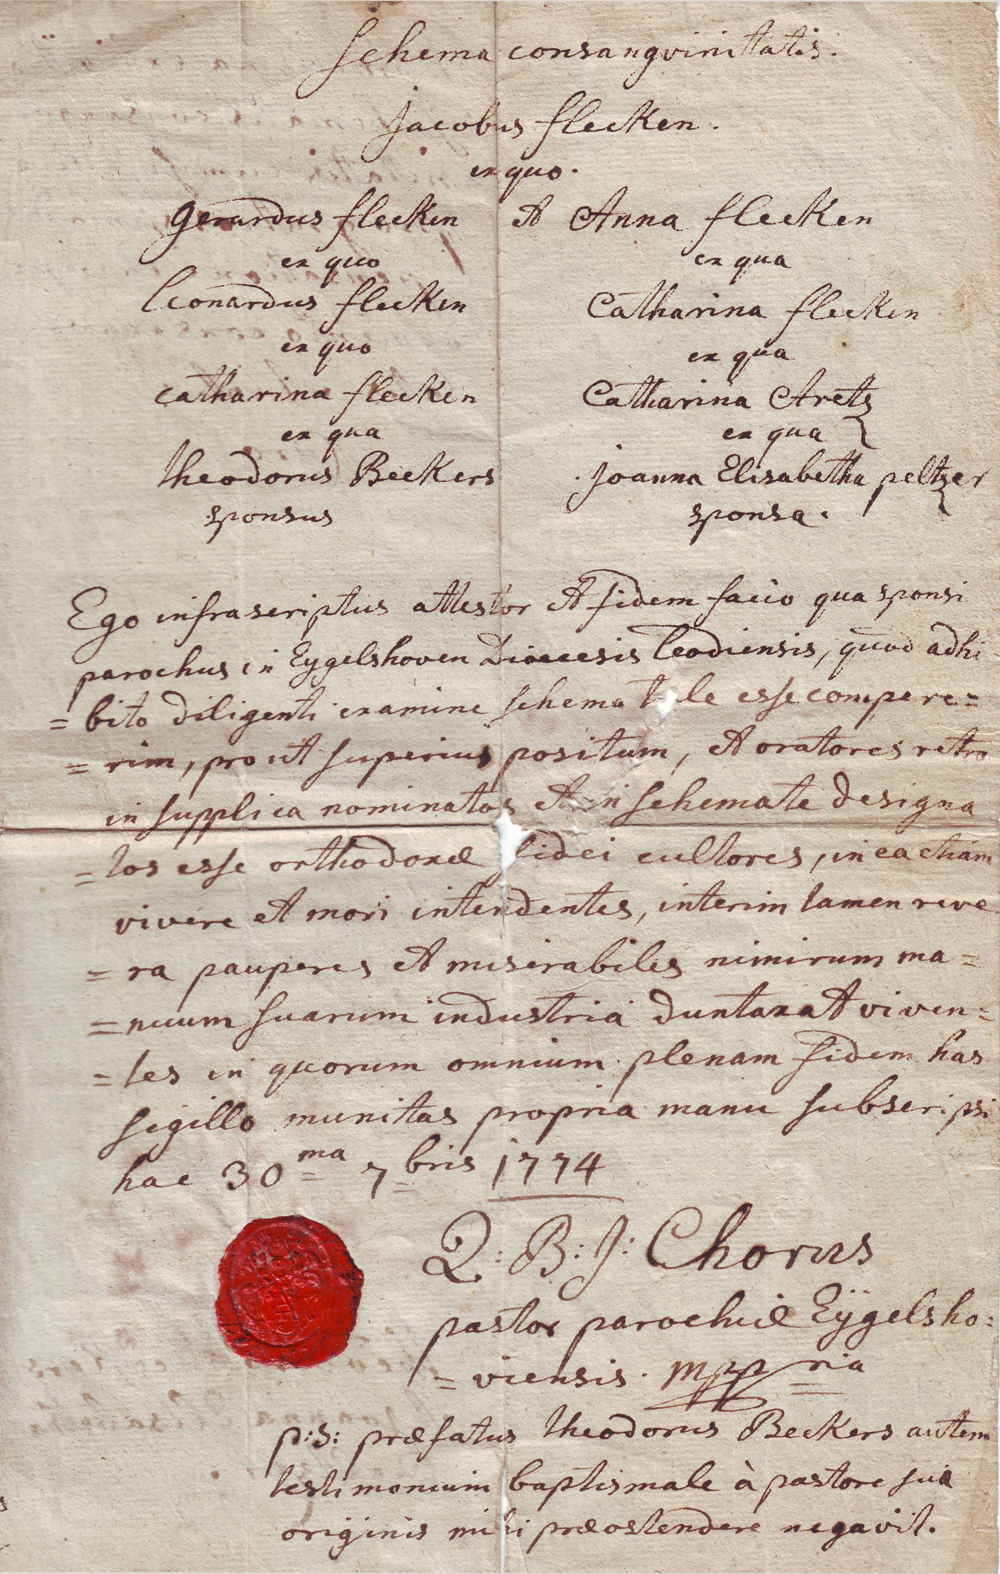 Schema consangvinitatis.
Jacobus flecken.
ex quo.
Gerardus flecken et Anna flecken
ex quo ex qua
Leonardus flecken Catharina flecken
ex quo ex qua
Catharina flecken Catharina Aretz
ex qua ex qua
theodorus Beckers Joanna Elisabetha peltzer
sponsus sponsa.
Ego infrascriptus attestor et fidem facio qua sponsi
parochus in Eygelshoven Dioecesis leodiensis, quod adhi-
= bito diligenti examine schema tale esse compere=
= rim, prout superius positum, et oratores retro
in supplica nominatos et in schemate designa
= tos esse orthodoxæ fidei cultores, in ea etiam
vivere et mori intendentes, interim tamen reve
= ra pauperes et miserabiles nimirum ma=
= nuum suarum industria duntaxat viven=
= tes in quorum omnium plenam fidem has
sigillo munitas propria manu subscripsi
hac 30ma 7bris 1774
Q: B: J: Chorus
pastor parochiæ Eÿgelsho=
= viensis. mppria
p:S: præfatus theodorus Beckers autem
testimonium baptismale à pastore suæ
originis mihi præostendere negavit.